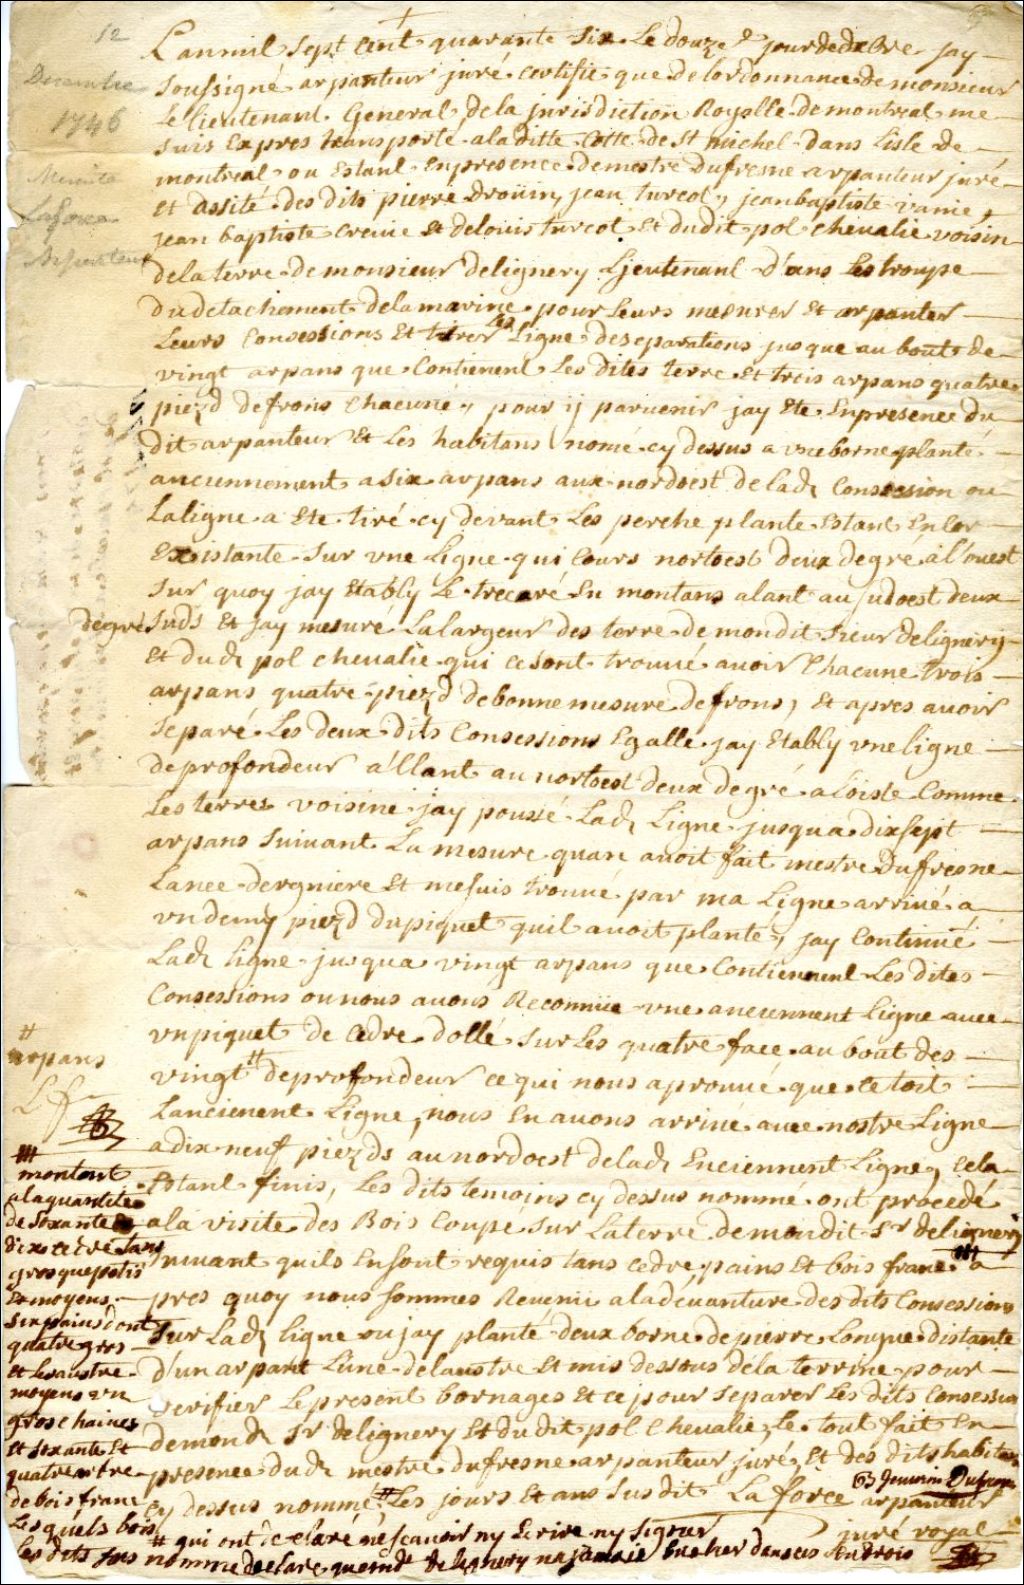 12
Decembre
1746
Lanmil sept cent quarante six Le douze e jour de dexbre jay
soussigné arpanteur juré certifie que de lordonnance de monsieur
le lieutenant General de la jurisdiction Royalle de montreal me
suis Expres transporte a la ditte Cotte de St michel dans Lisle de
montreal ou Estant En presence de mestre Dufresne arpanteur juré
Et assité des dits pierre Drouin, jean turcot, jean baptiste vanie,
jean baptiste crevie Et de louis turcot Et dudit pol chevalie voisin
de la terre de monsieur delignery Ljeutenant d'ans Les troupe
Du detachement de la marine pour Leurs mesurer Et arpanter
Leurs Consessions Et tirer Les Ligne de separations jusque au bout de
vingt arpans que Contienent Les dites terre Et trois arpans quatre
piezd de frons Chacune, pour ij parvenir jay Ete En presence du
dit arpanteur Et Les habitans nomé cy dessus a vne borne planté
anciennement a six arpans aux nordoest de lad Consession ou
La ligne a Ete tiré cy devant Les perche plante Estant Encor
Existante sur vne Ligne qui Cours nortoest deux degré à l'ouest
sur quoy jay Etably Le trecaré En montans alant au sudoest deux
degré suds Et jay mesuré La largeur des terre de mondit sieur delignery
Et dud pol chevalie qui ce sont trouvé avoir Chacune trois
arpans quatre piezd de bonne mesure de frons, Et apres avoir
separé Les deux dits Consessions Egalle jay Etably vne ligne
de profondeur a'llant au nortoest deux degré a Loiste Comme
Les terres voisine jay poussé Lad Ligne jusqua dix sept
arpans suivant La mesure quan avoit fait mestre Dufresne
Lanee dergniere Et me suis trouvé par ma Ligne arrivé a
vn demy piezd du piquet quil avoit planté, jay Continué
Lad ligne jusqua vingt arpans que Contiennent Les dites
Consessions ou nous avons Reconnüe vne anciennent Ligne avec
vn piquet de Cedre dollé sur Les quatre face au bout des
vingt # de profondeur ce qui nous a prouvué que ce toit
# arpans
L f
Lancienent Ligne, nous En avons arrivé avec nostre Ligne
a dix neuf piezds au nordoest de lad Enciennent Ligne, Cela
Estant finis, Les dits temoins cy dessus nommé ont procedé
a la visite des Bois Coupé sur La terre de mondit Sr delignery
suivant quils En sont requis tans cedre, pains Et bois franc a
pres quoy nous sommes Revenü a la devanture des dits Consessions
sur Lad Ligne ou jay planté deux borne de pierre Longue distante
d'un arpant Lune de lautre Et mis dessous de la terrine pour
verifier Le present bornages Et ce pour separer Les dits Consession
de mond Sr delignery Et du dit pol Chevalie, le tout fait En
presence dud mestre dufresne arpanteur juré, Et des dits habitans
cy dessus nommé # Les jours Et ans susdit La force arpanteur
juré royal
montant
a la quantité
de soxante
dix cedre tans
gros que petis
Et moyens
six pains dont
quatre gros
et Les autre
moyens vn
gros chaines
Et soxante Et
quatre
de bois franc
Les quels bois
# qui ont declaré ne scavoir ny Ecrire ny signer
Les dits sus nommé declare que mond delignery na jamais bucher dans ces Endrois